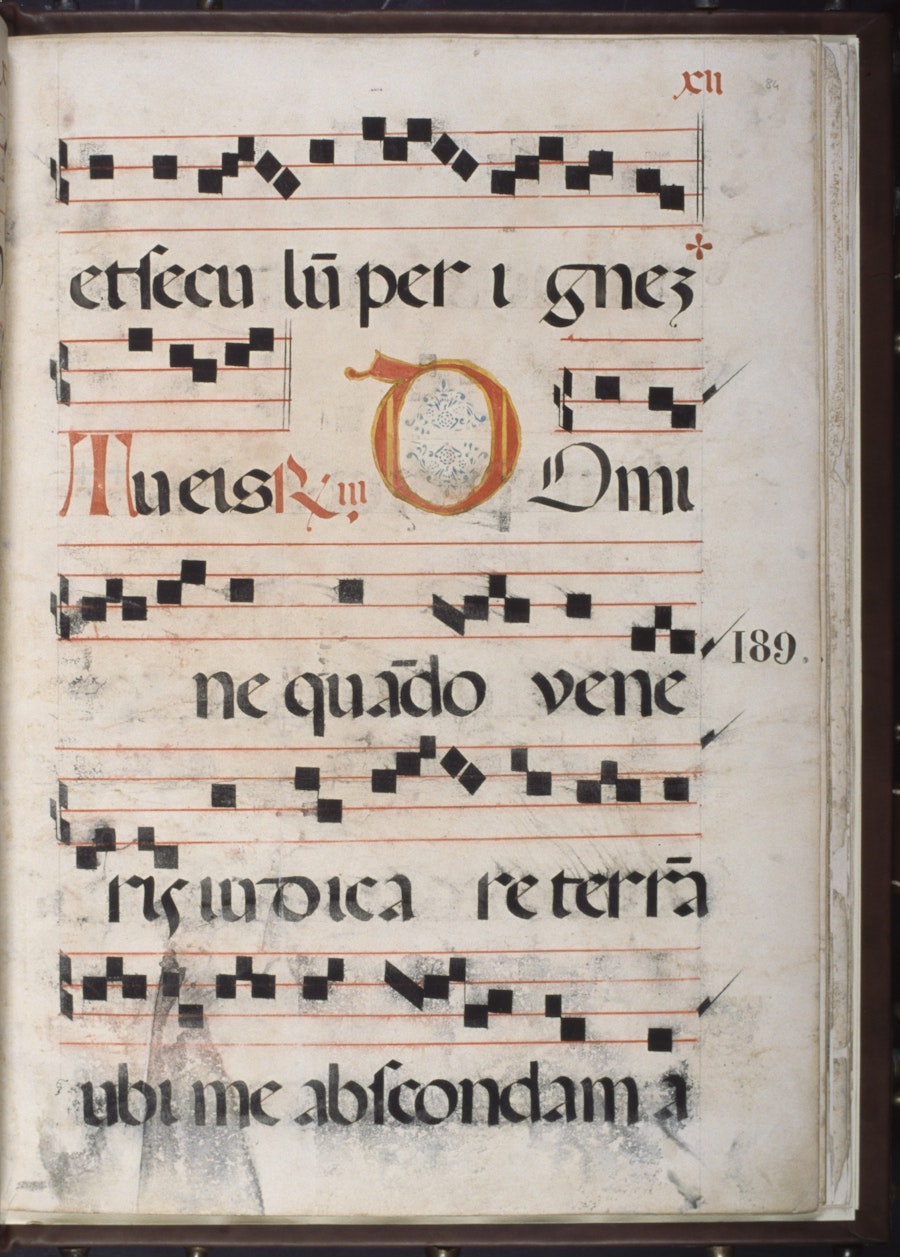 xii 84
et secu lū per i gnez
Tu eis R iii D Omi
ne quādo vene
189.
ris iudica re terrā
ubi me abscondam a